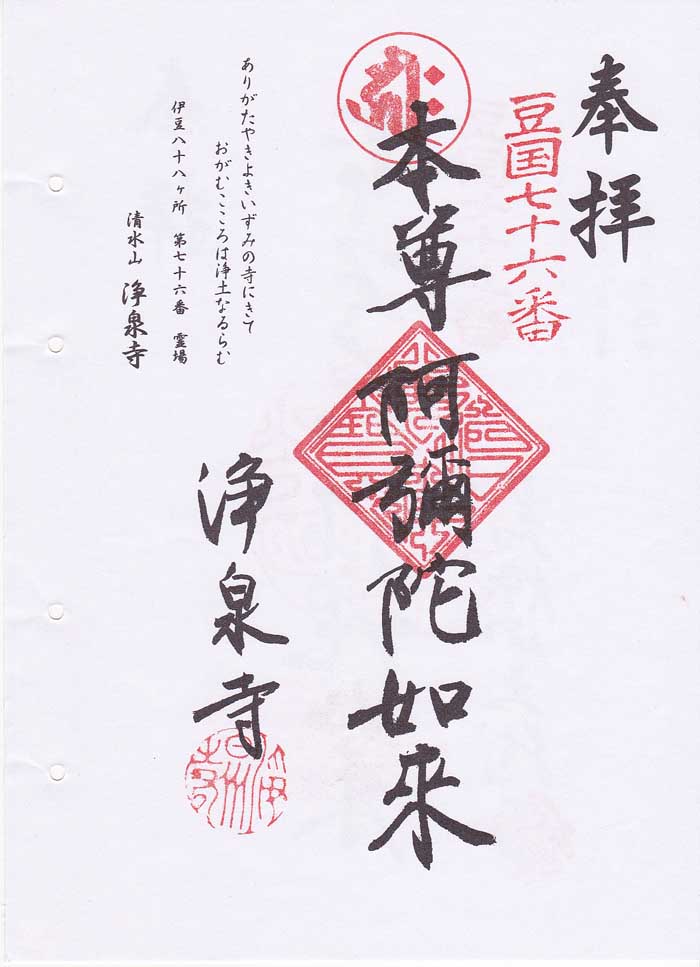 奉拝
豆国七十六番
本尊阿彌陀如来
浄泉寺
ありがたやきよきいずみの寺にきて
おがむこころは浄土なるらむ
伊豆八十八ヶ所　第七十六番　霊場
清水山　浄泉寺